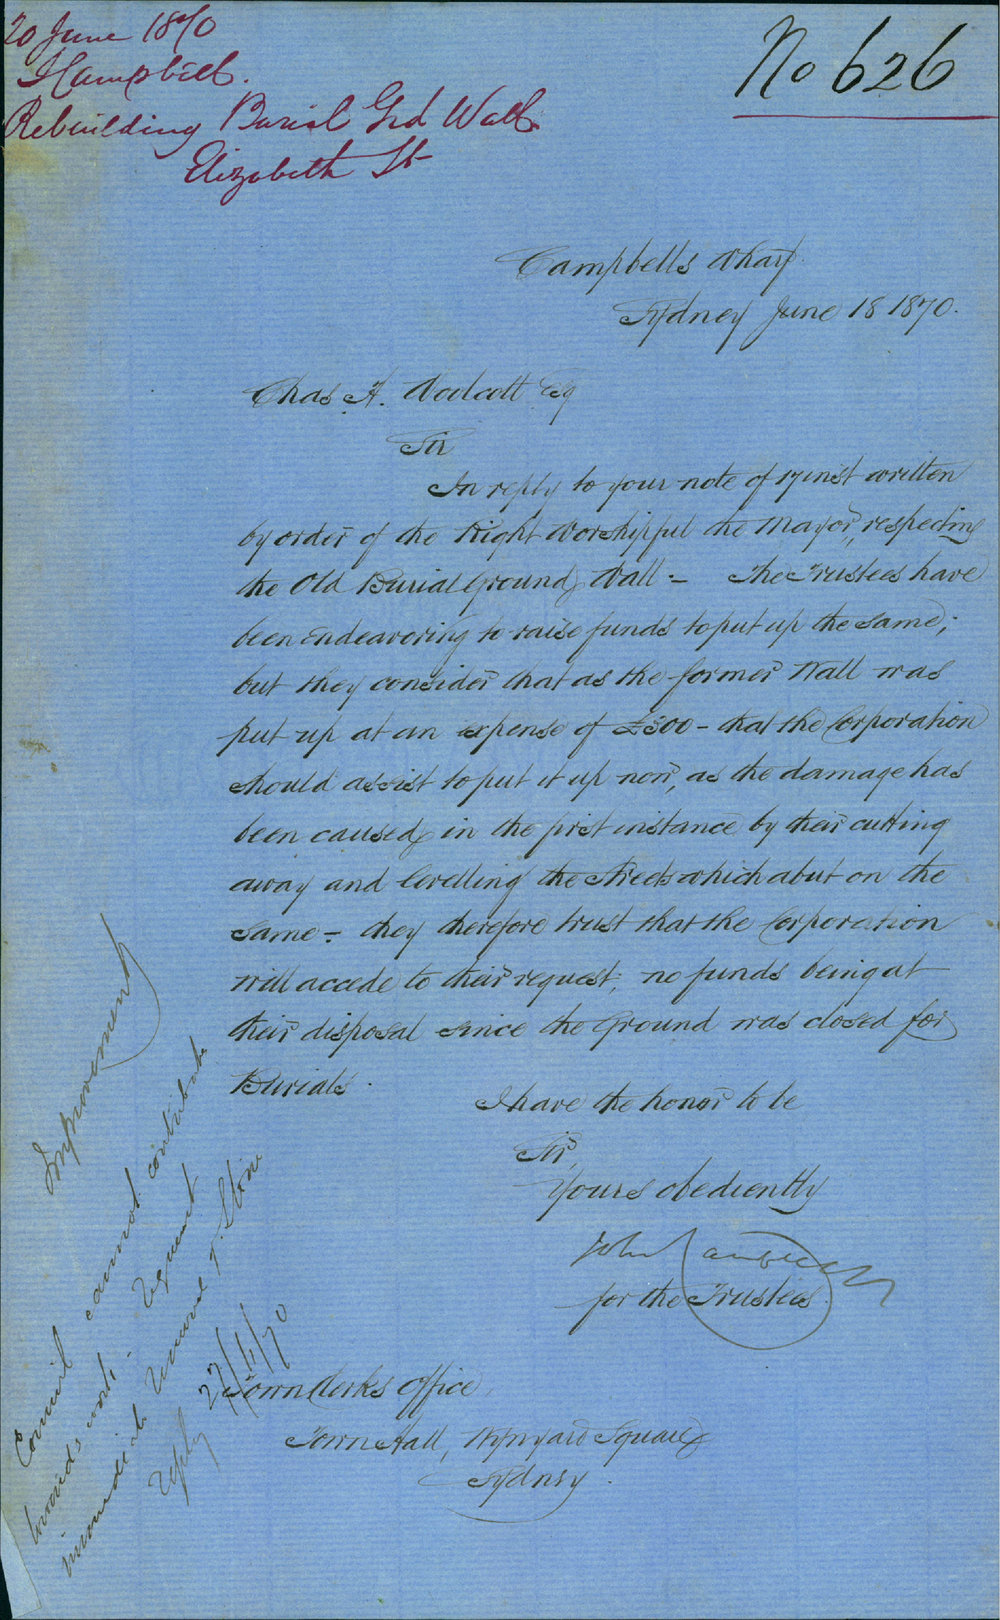 20 June 1870
J Campbell.
Rebuilding Burial Grd Wall
Elizabeth St
No 626
Campbells Wharf
Sydney June 18 1870.
Chas. H. Woolcott Esq
Sir
In reply to your note of 17 inst written
by order of the Right Worshipful the Mayor, respecting
the Old Burial Ground Wall :- The Trustees have
been endeavoring to raise funds to put up the same;
but they consider that as the former Wall was
put up at an expense of £300 - that the Corporation
should assist to put it up now, as the damage has
been caused in the first instance by their cutting
away and levelling the Streets which abut on the
same :- they therefore trust that the Corporation
will accede to their request; no funds being at
their disposal since the Ground was closed for
Burials.
I have the honor to be
Sir,
Yours obediently
John Campbell
for the Trustees
Town Clerks Office,
Town Hall, Wynyard Square
Sydney.
Improvement
Council cannot contribute
towards work - Request
immediate removal of Stone
Reply 22/6/70